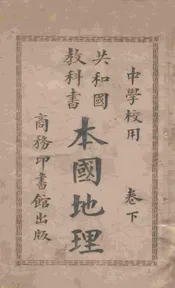 中學校用
共和國
教科書
本國地理
卷下
商務印書館出版